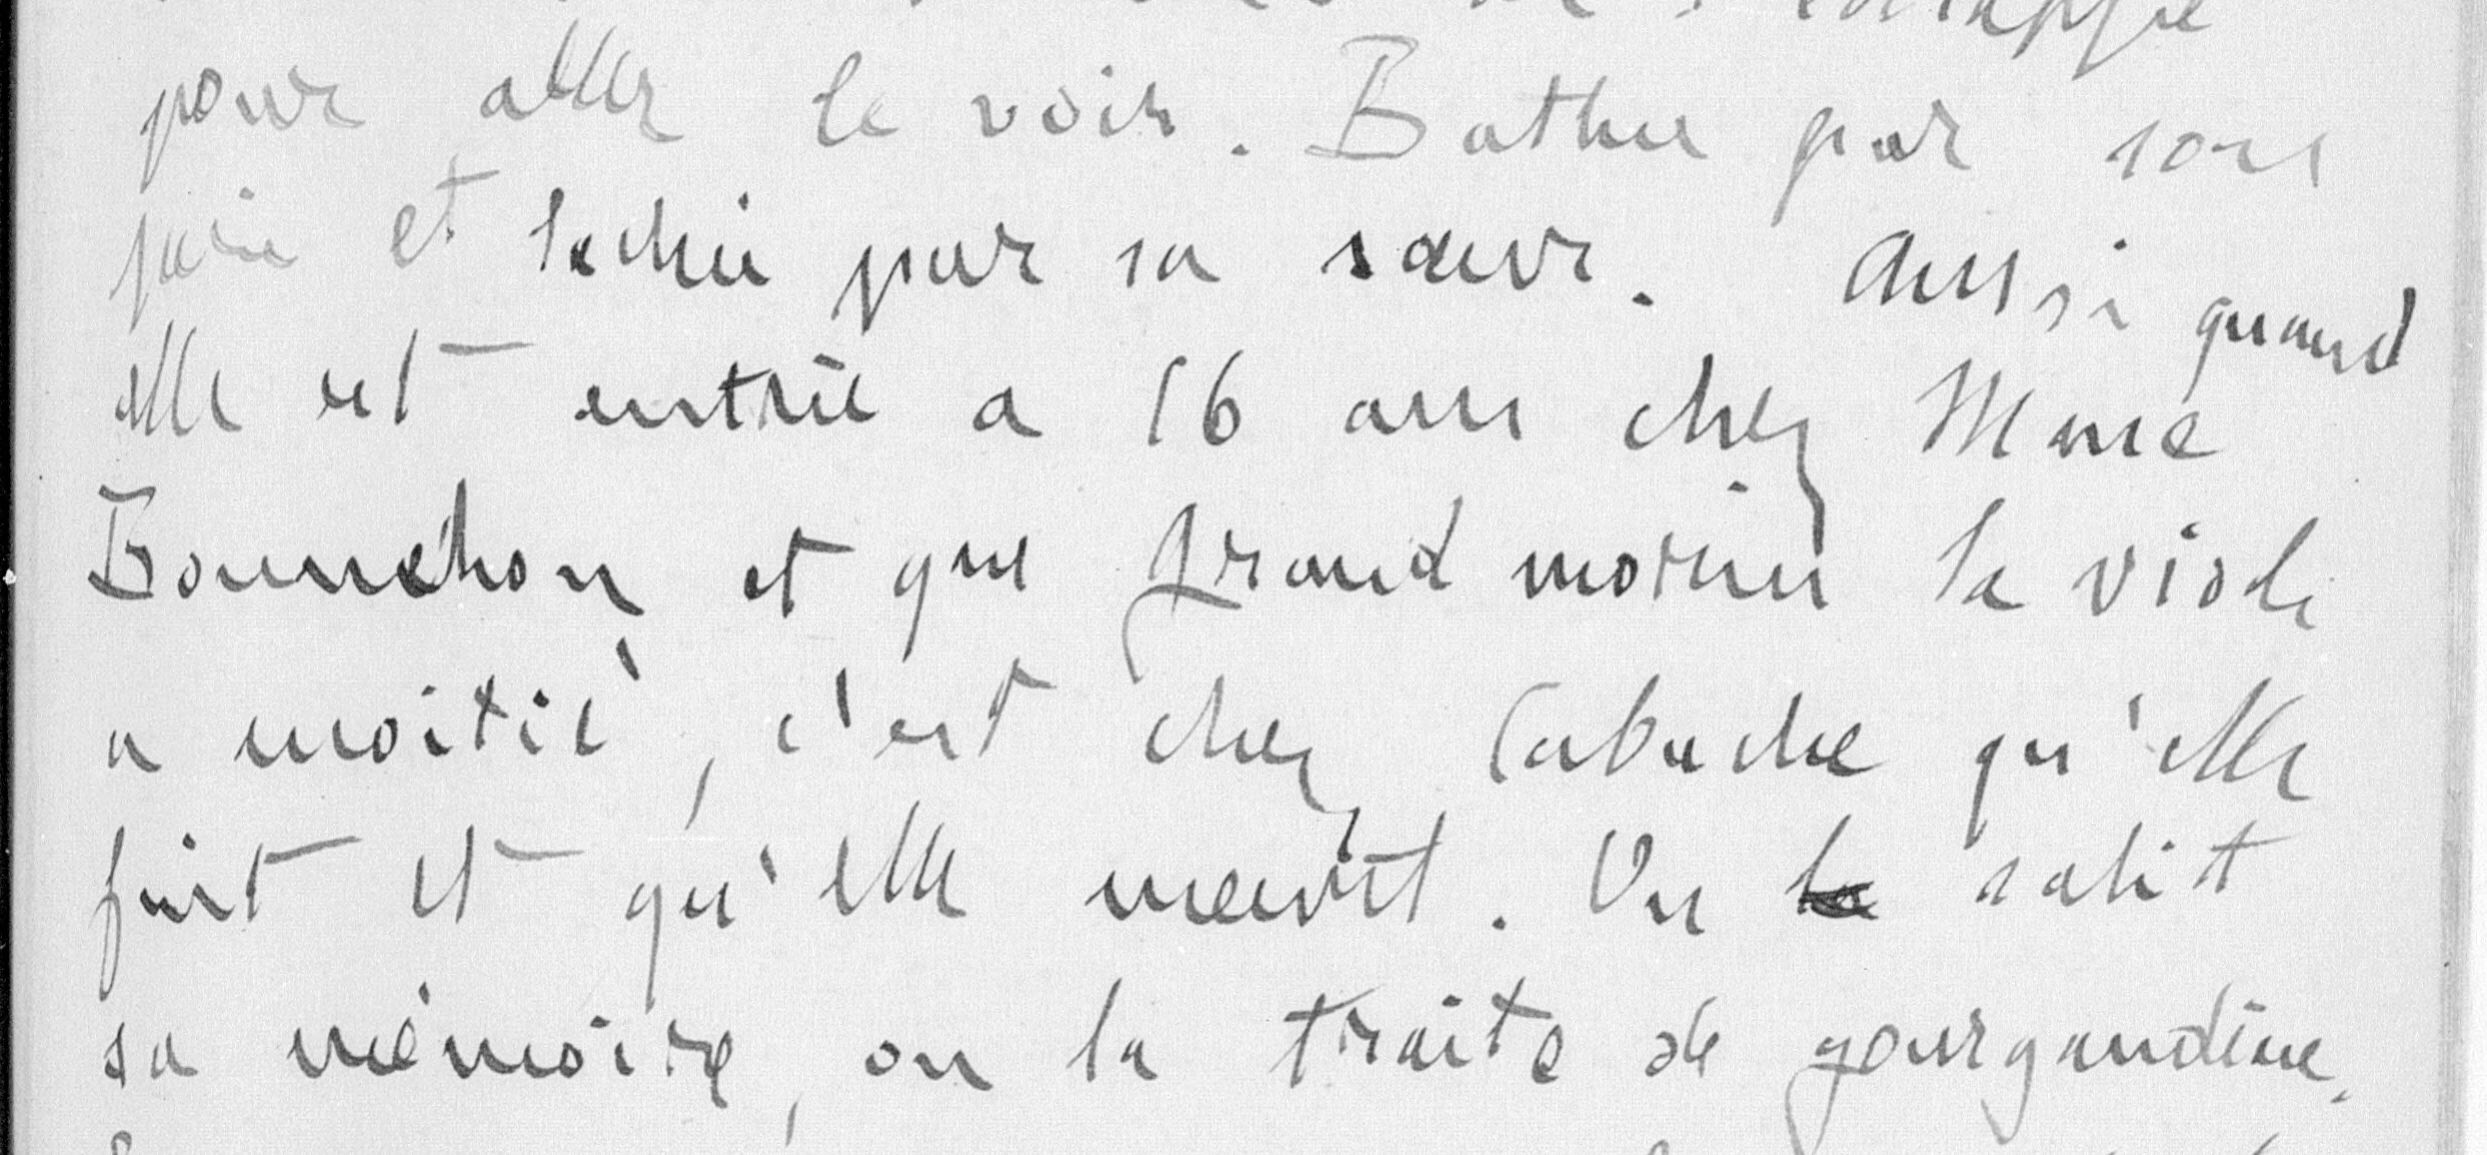 pour aller le voir. Battue par son
père et lachée par sa sœur. Aussi quand
elle est entrée a 16 ans chez Mme
Bonnehon et que Grandmorin la viole
a moitié, c'est chez Cabuche qu'elle
fuit et qu'elle meurt. On la salit
sa mémoire, on la traite de gourgandine.